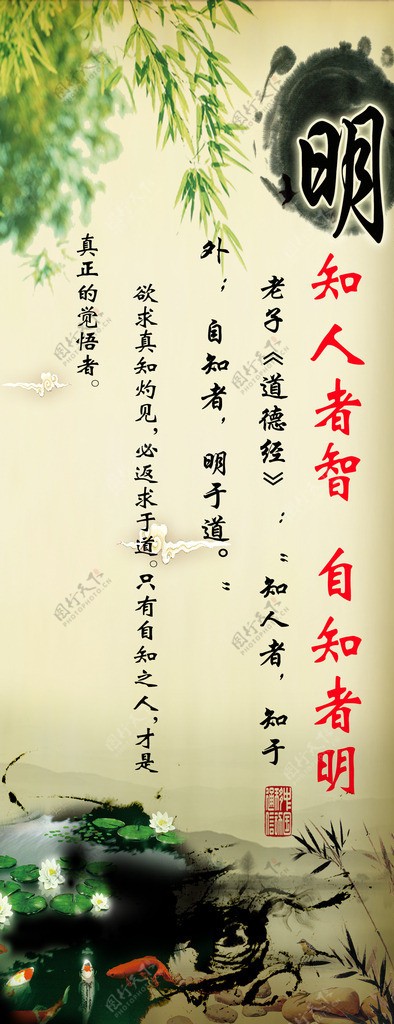 明
知人者智 自知者明
老子《道德经》：“知人者，知于
外；自知者，明于道。”
欲求真知灼见，必返求于道。只有自知之人，才是
真正的觉悟者。
中国移动通信
图行天下
PHOTOPHOTO.CN